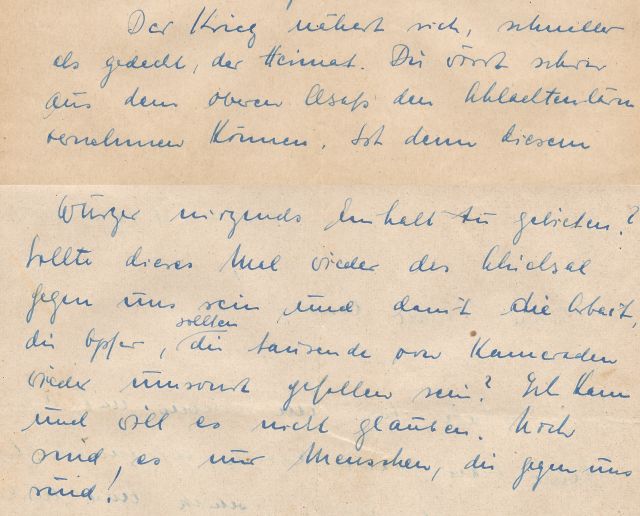 Der Krieg nähert sich, schneller
als gedacht, der Heimat. Du wirst schon
aus dem oberen Elsaß den Schlachtenlärm
vernehmen können. Ist denn diesem
Würger nirgends Einhalt zu gebieten?
Sollte dieses Mal wieder das Schicksal
gegen uns sein und damit die Arbeit,
die Opfer, sollten die tausende von Kameraden
wieder umsonst gefallen sein? Ich kann
und will es nicht glauben. Noch
sind es nur Menschen, die gegen uns
sind!